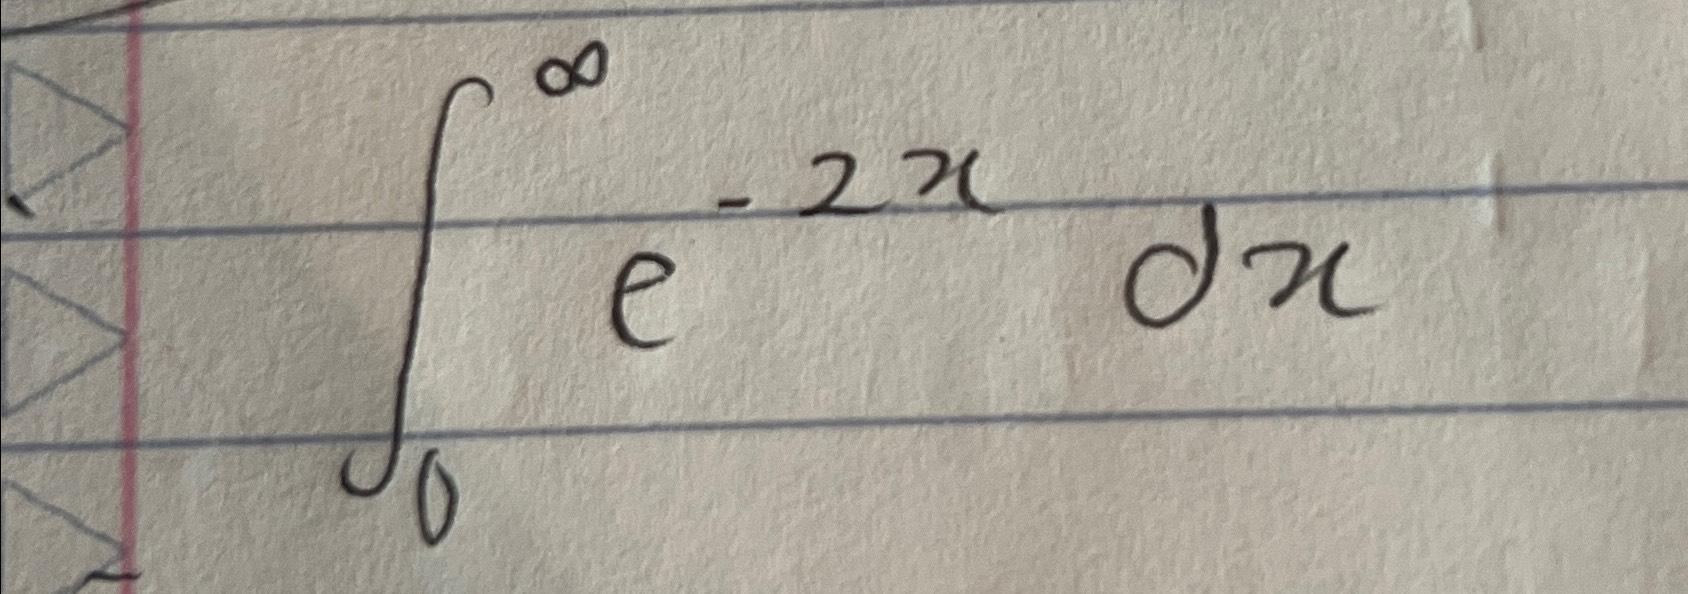 ∫₀^∞ e^{-2x} dx